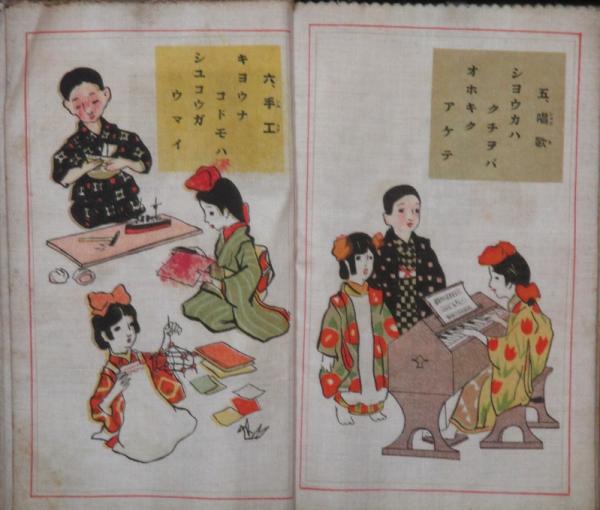 五、唱歌
シヨウカハ
クチヲバ
オホキク
アケテ
六、手工
キヨウナ
コドモハ
シユコウガ
ウマイ